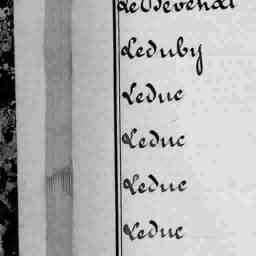 Leduby
Leduc
Leduc
Leduc
Leduc